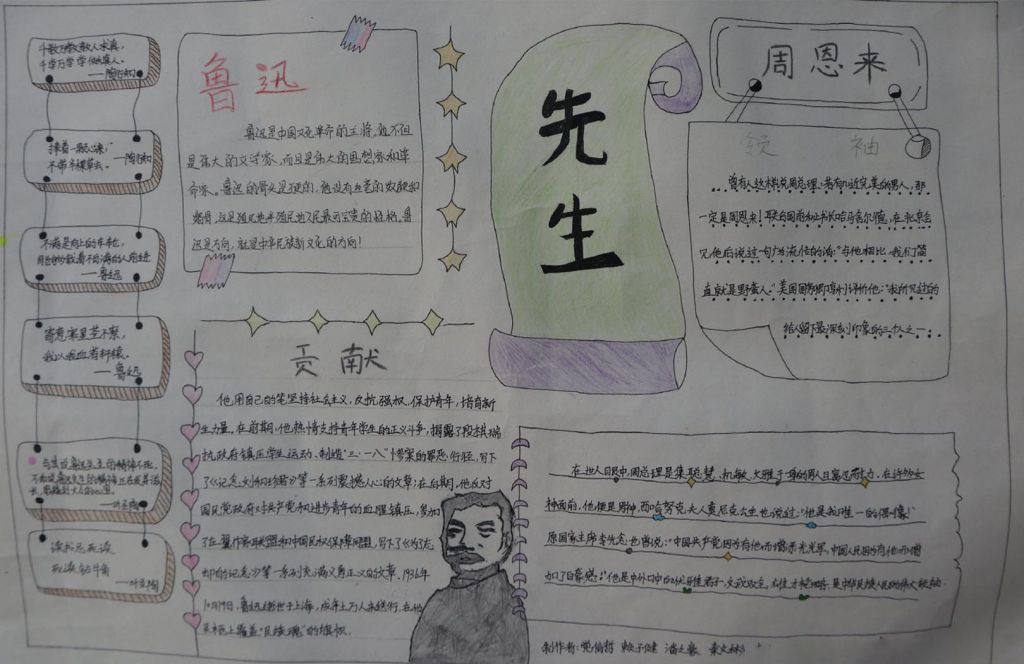 千教万教教人求真，
千学万学学做真人。
——陶行知
捧着一颗心来，
不带半根草去。——陶行知
不满是向上的车轮，
——鲁迅
寄意寒星荃不察，
我以我血荐轩辕。
——鲁迅
读书忌死读
死读钻牛角
——叶圣陶
鲁迅
鲁迅是中国文化革命的主将，他不但
是伟大的文学家，而且是伟大的思想家和革
命家。鲁迅的骨头是硬的，他没有丝毫的奴颜和
媚骨，这是殖民地半殖民地人民最可宝贵的性格。鲁
迅是方向，就是中华民族新文化的方向！
贡献
他用自己的笔坚持社会主义，反抗强权，保护青年，培育新
生力量。在前期，他热情支持青年学生的正义斗争，揭露了段祺瑞
执政府镇压学生运动、制造“三·一八”惨案的罪恶行径，写下
了《记念刘和珍君》等一系列震撼人心的文章；在后期，他反对
国民党政府对共产党和进步青年的血腥镇压，参加
了左翼作家联盟和中国民权保障同盟，写下了《为了忘
却的记念》等一系列充满义勇正义的文章。1936年
10月19日，鲁迅逝世于上海，成千上万人来送行，在他
灵柩上覆盖“民族魂”的旗帜
先生
周恩来
领袖
曾有人这样说周总理：若有如近完美的男人，那
一定是周恩来！联合国前秘书长哈马舍尔德，在北京会
见他后说过一句广为流传的话：“与他相比，我们简
直就是野蛮人。”美国国务卿亨利评价他：“我所见过的
给人留下最深刻印象的三个人之一
在世人眼中，周总理是集聪慧、机敏、文雅于一身的男人且富
神面前，他便是男神。西哈努克夫人莫尼克公主也说过：“他是我唯一的偶像！”
原国家主席李先念也曾说：“中国共产党因为有他而增添光荣，中国人民因为有他而增
加了自豪感。”
制作者：